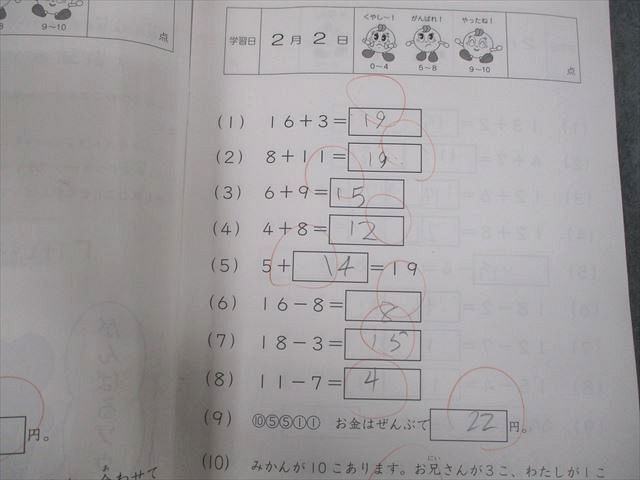 9～10
点
学習日 2月2日
くやし～！ がんばれ！ やったね！
0～4 5～8 9～10
点
(1) 16＋3＝19
(2) 8＋11＝19
(3) 6＋9＝15
(4) 4＋8＝12
(5) 5＋14＝19
(6) 16－8＝8
(7) 18－3＝15
(8) 11－7＝4
(9) ⑩⑤⑤①① お金はぜんぶで22円。
(10) みかんが10こあります。お兄さんが3こ、わたしが1こ
にい
円。
あ
合わせて